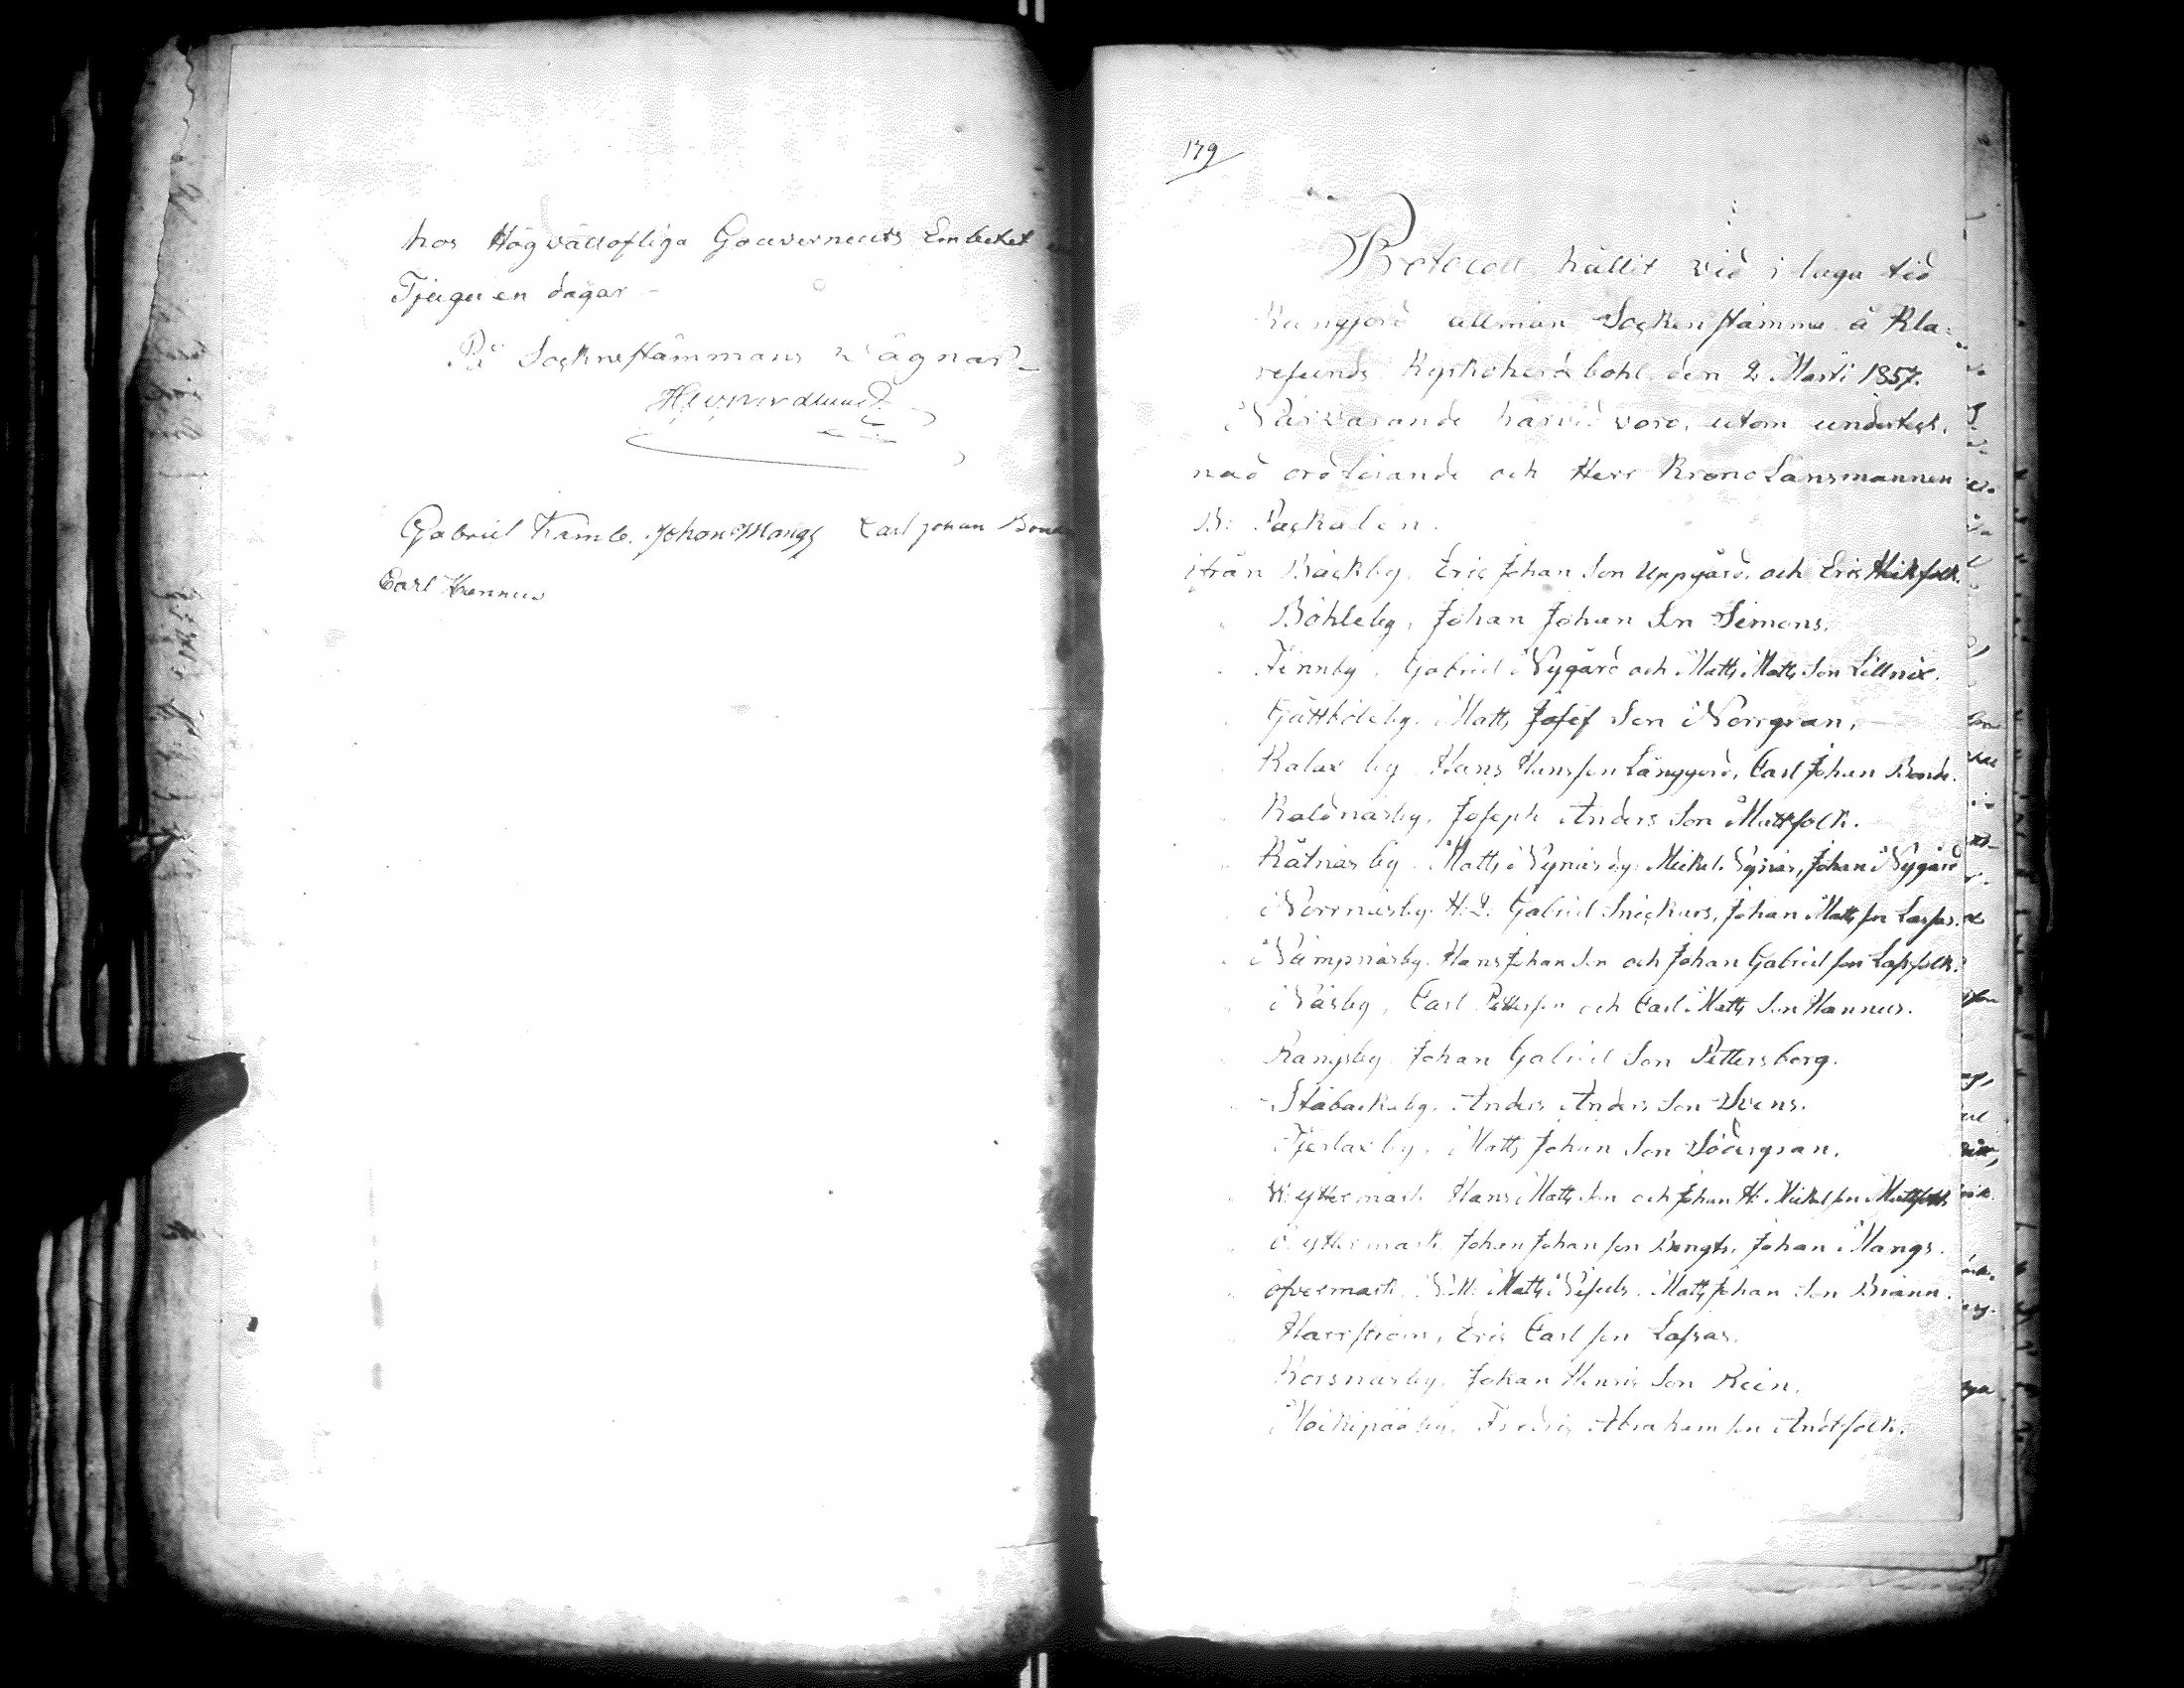 hos Högvällofliga Gouverneurs Embetet
Tjugu en dagar
På Socknestämmans vägnar
Gabriel Kamb. Johan Mangs Carl Johan Bonde
Carl Hannus
179
Protocoll hållit vid i laga tid
Kungjord allmän Sockenstämma å Kla-
resunds Kyrkoherdebohl den 2 Marti 1857.
Närvarande härvid voro, utom underteck-
nad ordförande och Herr Krono Länsmannen
B: Packalen.
ifrån Bäckby, Eric Johan Son Uppgård, och Eric
Böhleby, Johan Johan Son Simons.
Finnby, Gabriel Nygård och Matts Matts Son Lillnix.
Gottböleby, Matts Josef Son Norrgran.
Kalax by Hans Hansson Långgård, Carl Johan Bonde.
Kaldnäsby, Joseph Anders Son Mattfolk.
Kåtnäsby Matts Nynäs dy Mickel Nynäs, Johan Nygård
Norrnäsby H. L. Gabriel Snickars, Johan Matts son Lassas.
Nämpnäsby. Hans Johan Son och Johan Gabriel son Lassfolk.
Näsby, Carl Petterson och Carl Matts Son Hannus.
Rangsby Johan Gabriel Son Pettersborg.
Ståbackaby, Anders Anders Son Svens.
Tjerlax by, Matts Johan Son Södergran.
W: yttermark Hans Matts Son och Johan H. Mickel son Mattfolk
Ö. yttermark Johan Johan son Bengts, Johan Mangs.
öfvermark N: M: Matts Nissuls. Matts Johan Son Brann.
Harrström, Eric Carl son Lassas.
Korsnäsby, Johan Henric Son Rein.
Moikipää by, Fredric Abraham son Andtfolk.